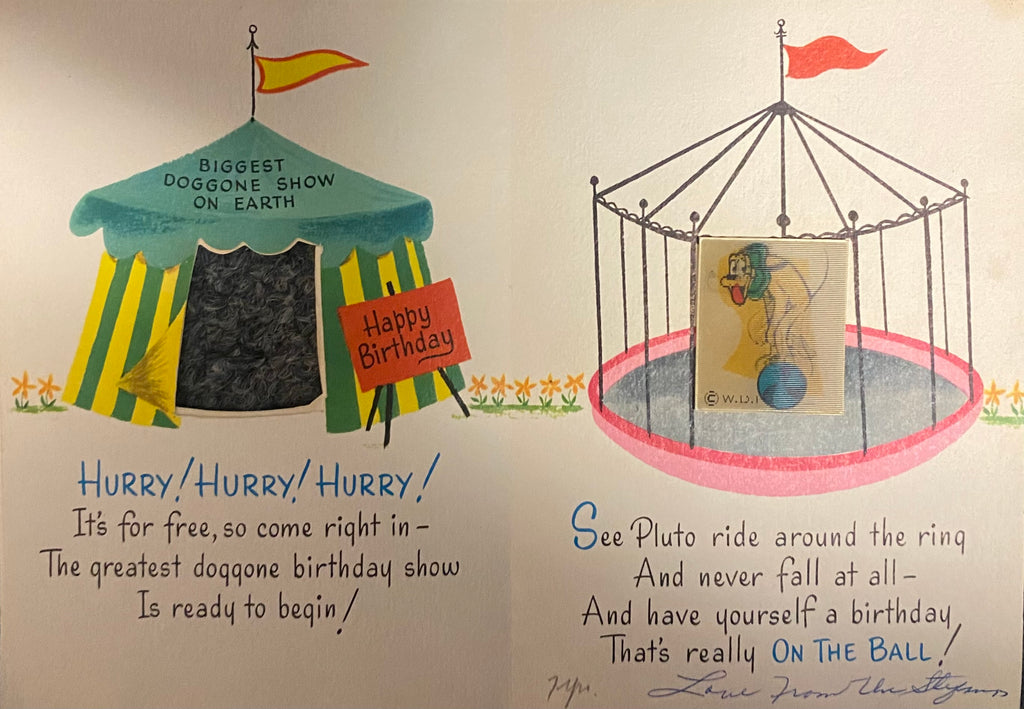 BIGGEST
DOGGONE SHOW
ON EARTH
Happy
Birthday
HURRY! HURRY! HURRY!
It's for free, so come right in –
The greatest doggone birthday show
Is ready to begin!
© W.D.
See Pluto ride around the ring
And never fall at all –
And have yourself a birthday
That's really ON THE BALL!
Love From The